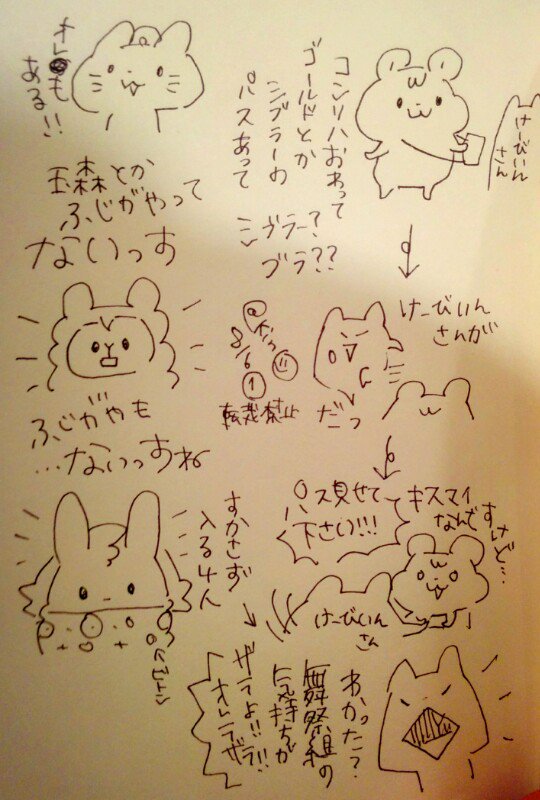 けーびいん
さん
コンリハおわって
ゴールドとか
シブラーの
パスあって
シヴラー?
ブラ??
けーびいん
さんが
だっ
8/6
①
転載禁止
キスマイ
なんですけど…
パス見せて
下さい!!!
けーびいん
さん
わかった?
舞祭組の
気持ちが
オレも
ある!!
玉森とか
ふじがやって
ないっす
ふじがやも
…ないっすね
すかさず
入る4人